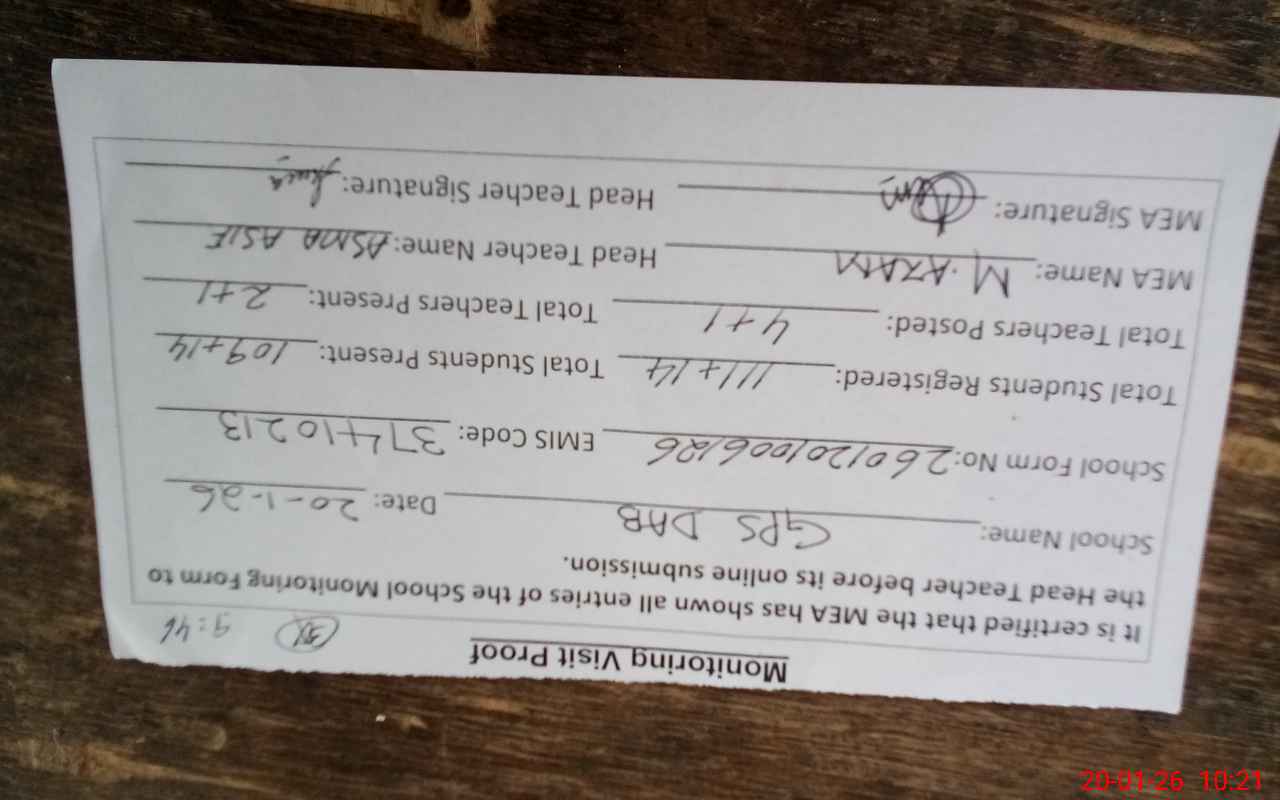 Monitoring Visit Proof 9:46
It is certified that the MEA has shown all entries of the School Monitoring Form to
the Head Teacher before its online submission.
School Name: GPS DAB Date: 20-1-26
School Form No: 2601201006126 EMIS Code: 37410213
Total Students Registered: 111+14 Total Students Present: 109+14
Total Teachers Posted: 4+1 Total Teachers Present: 2+1
MEA Name: M. AZAM Head Teacher Name: ASMA ASIF
MEA Signature: Head Teacher Signature:
20-01-26 10:21